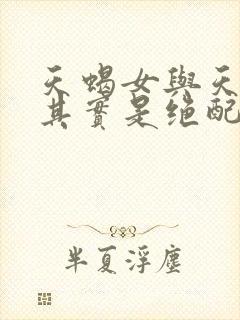 天蝎女與天
其實是绝配
半夏浮塵